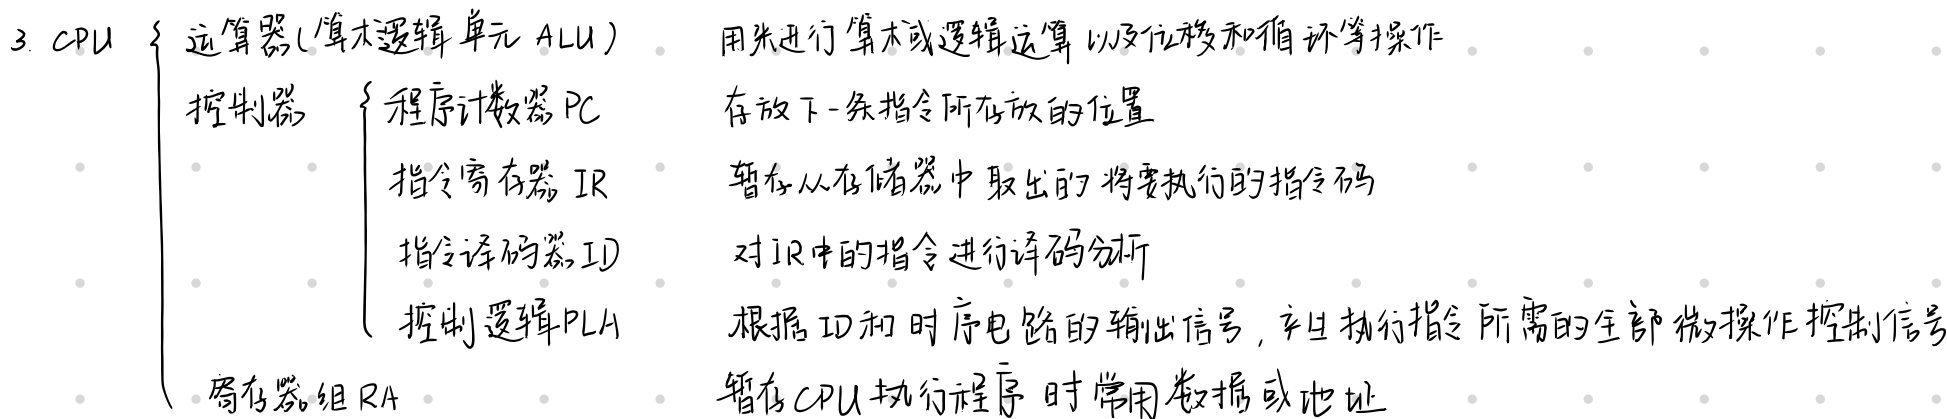 3. CPU { 运算器(算术逻辑单元 ALU) 用来进行算术或逻辑运算以及位移和循环等操作
控制器 { 程序计数器 PC 存放下一条指令所存放的位置
指令寄存器 IR 暂存从存储器中取出的将要执行的指令码
指令译码器 ID 对IR中的指令进行译码分析
控制逻辑PLA 根据ID和时序电路的输出信号,产生执行指令所需的全部微操作控制信号
寄存器组 RA 暂存CPU执行程序时常用数据或地址